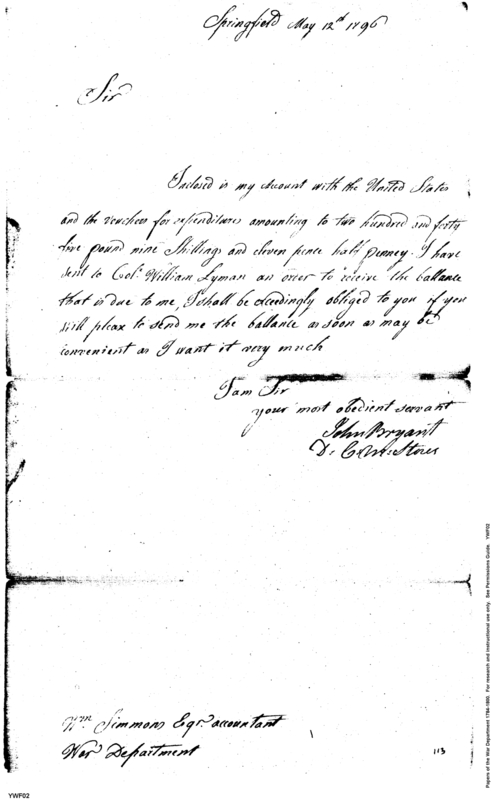 Springfield May 12th 1796
Sir
Inclosed is my Account with the United States
and the vouchers for expenditures amounting to two hundred and forty
five pound nine Shillings and eleven pence half penney. I have
sent to Col. William Lyman an order to receive the ballance
that is due to me, I shall be exceedingly obliged to you if you
will pleas to send me the ballance as soon as may be
convenient as I want it very much
I am Sir
your most obedient servant
John Bryant
D. C. M. Stores
Wm. Simmons Esqr. accountant
War Department
113
YWF02
Papers of the War Department 1784-1800. For research and instructional use only. See Permissions Guide. YWF02